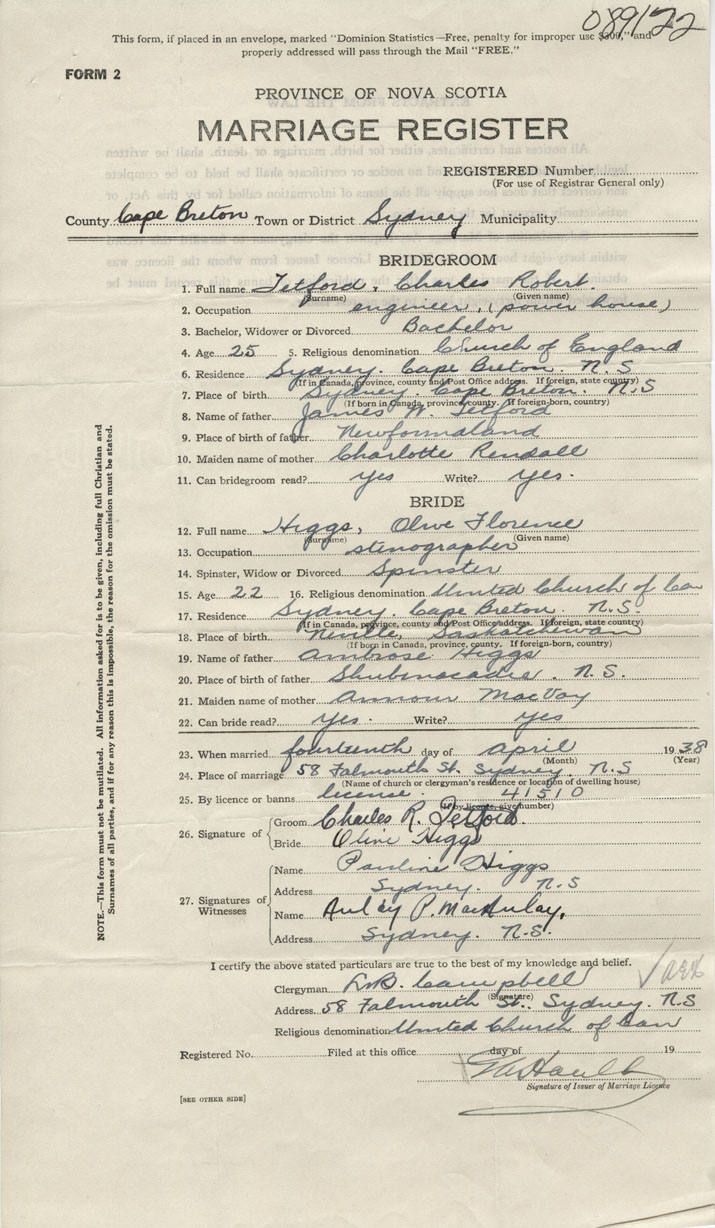 089122
This form, if placed in an envelope, marked "Dominion Statistics—Free, penalty for improper use $300," and
properly addressed will pass through the Mail "FREE."
FORM 2
PROVINCE OF NOVA SCOTIA
MARRIAGE REGISTER
REGISTERED Number
(For use of Registrar General only)
County Cape Breton Town or District Sydney Municipality
BRIDEGROOM
1. Full name Tetford, Charles Robert.
(Surname) (Given name)
2. Occupation engineer, (power house)
3. Bachelor, Widower or Divorced Bachelor
4. Age 25 5. Religious denomination Church of England
6. Residence Sydney. Cape Breton. N.S
(If in Canada, province, county and Post Office address. If foreign, state country)
7. Place of birth Sydney. Cape Breton. N.S
(If born in Canada, province, county. If foreign-born, country)
8. Name of father James W. Tetford
9. Place of birth of father Newfoundland
10. Maiden name of mother Charlotte Rendall
11. Can bridegroom read? yes Write? yes.
BRIDE
12. Full name Higgs, Olive Florence
(Surname) (Given name)
13. Occupation stenographer
14. Spinster, Widow or Divorced Spinster
15. Age 22 16. Religious denomination United Church of Can
17. Residence Sydney. Cape Breton. N.S.
(If in Canada, province, county and Post Office address. If foreign, state country)
18. Place of birth Neville, Saskatchewan
(If born in Canada, province, county. If foreign-born, country)
19. Name of father Ambrose Higgs
20. Place of birth of father Shubenacadie. N.S.
21. Maiden name of mother Annour MacVoy
22. Can bride read? yes. Write? yes
23. When married fourteenth day of April 1938
(Month) (Year)
24. Place of marriage 58 Falmouth St. Sydney. N.S
(Name of church or clergyman's residence or location of dwelling house)
25. By licence or banns license. 41510
(If by licence, give number)
26. Signature of Groom Charles R. Tetford.
Bride Olive Higgs
27. Signatures of Witnesses
Name Pauline Higgs
Address Sydney. N.S
Name P. MacAulay.
Address Sydney. N.S.
I certify the above stated particulars are true to the best of my knowledge and belief.
Clergyman Campbell
(Signature)
Address 58 Falmouth St. Sydney. N.S
Religious denomination United Church of Can
Registered No. Filed at this office day of 19
Signature of Issuer of Marriage Licence
[SEE OTHER SIDE]
NOTE.—This form must not be mutilated. All information asked for is to be given, including full Christian and
Surnames of all parties, and if for any reason this is impossible, the reason for the omission must be stated.